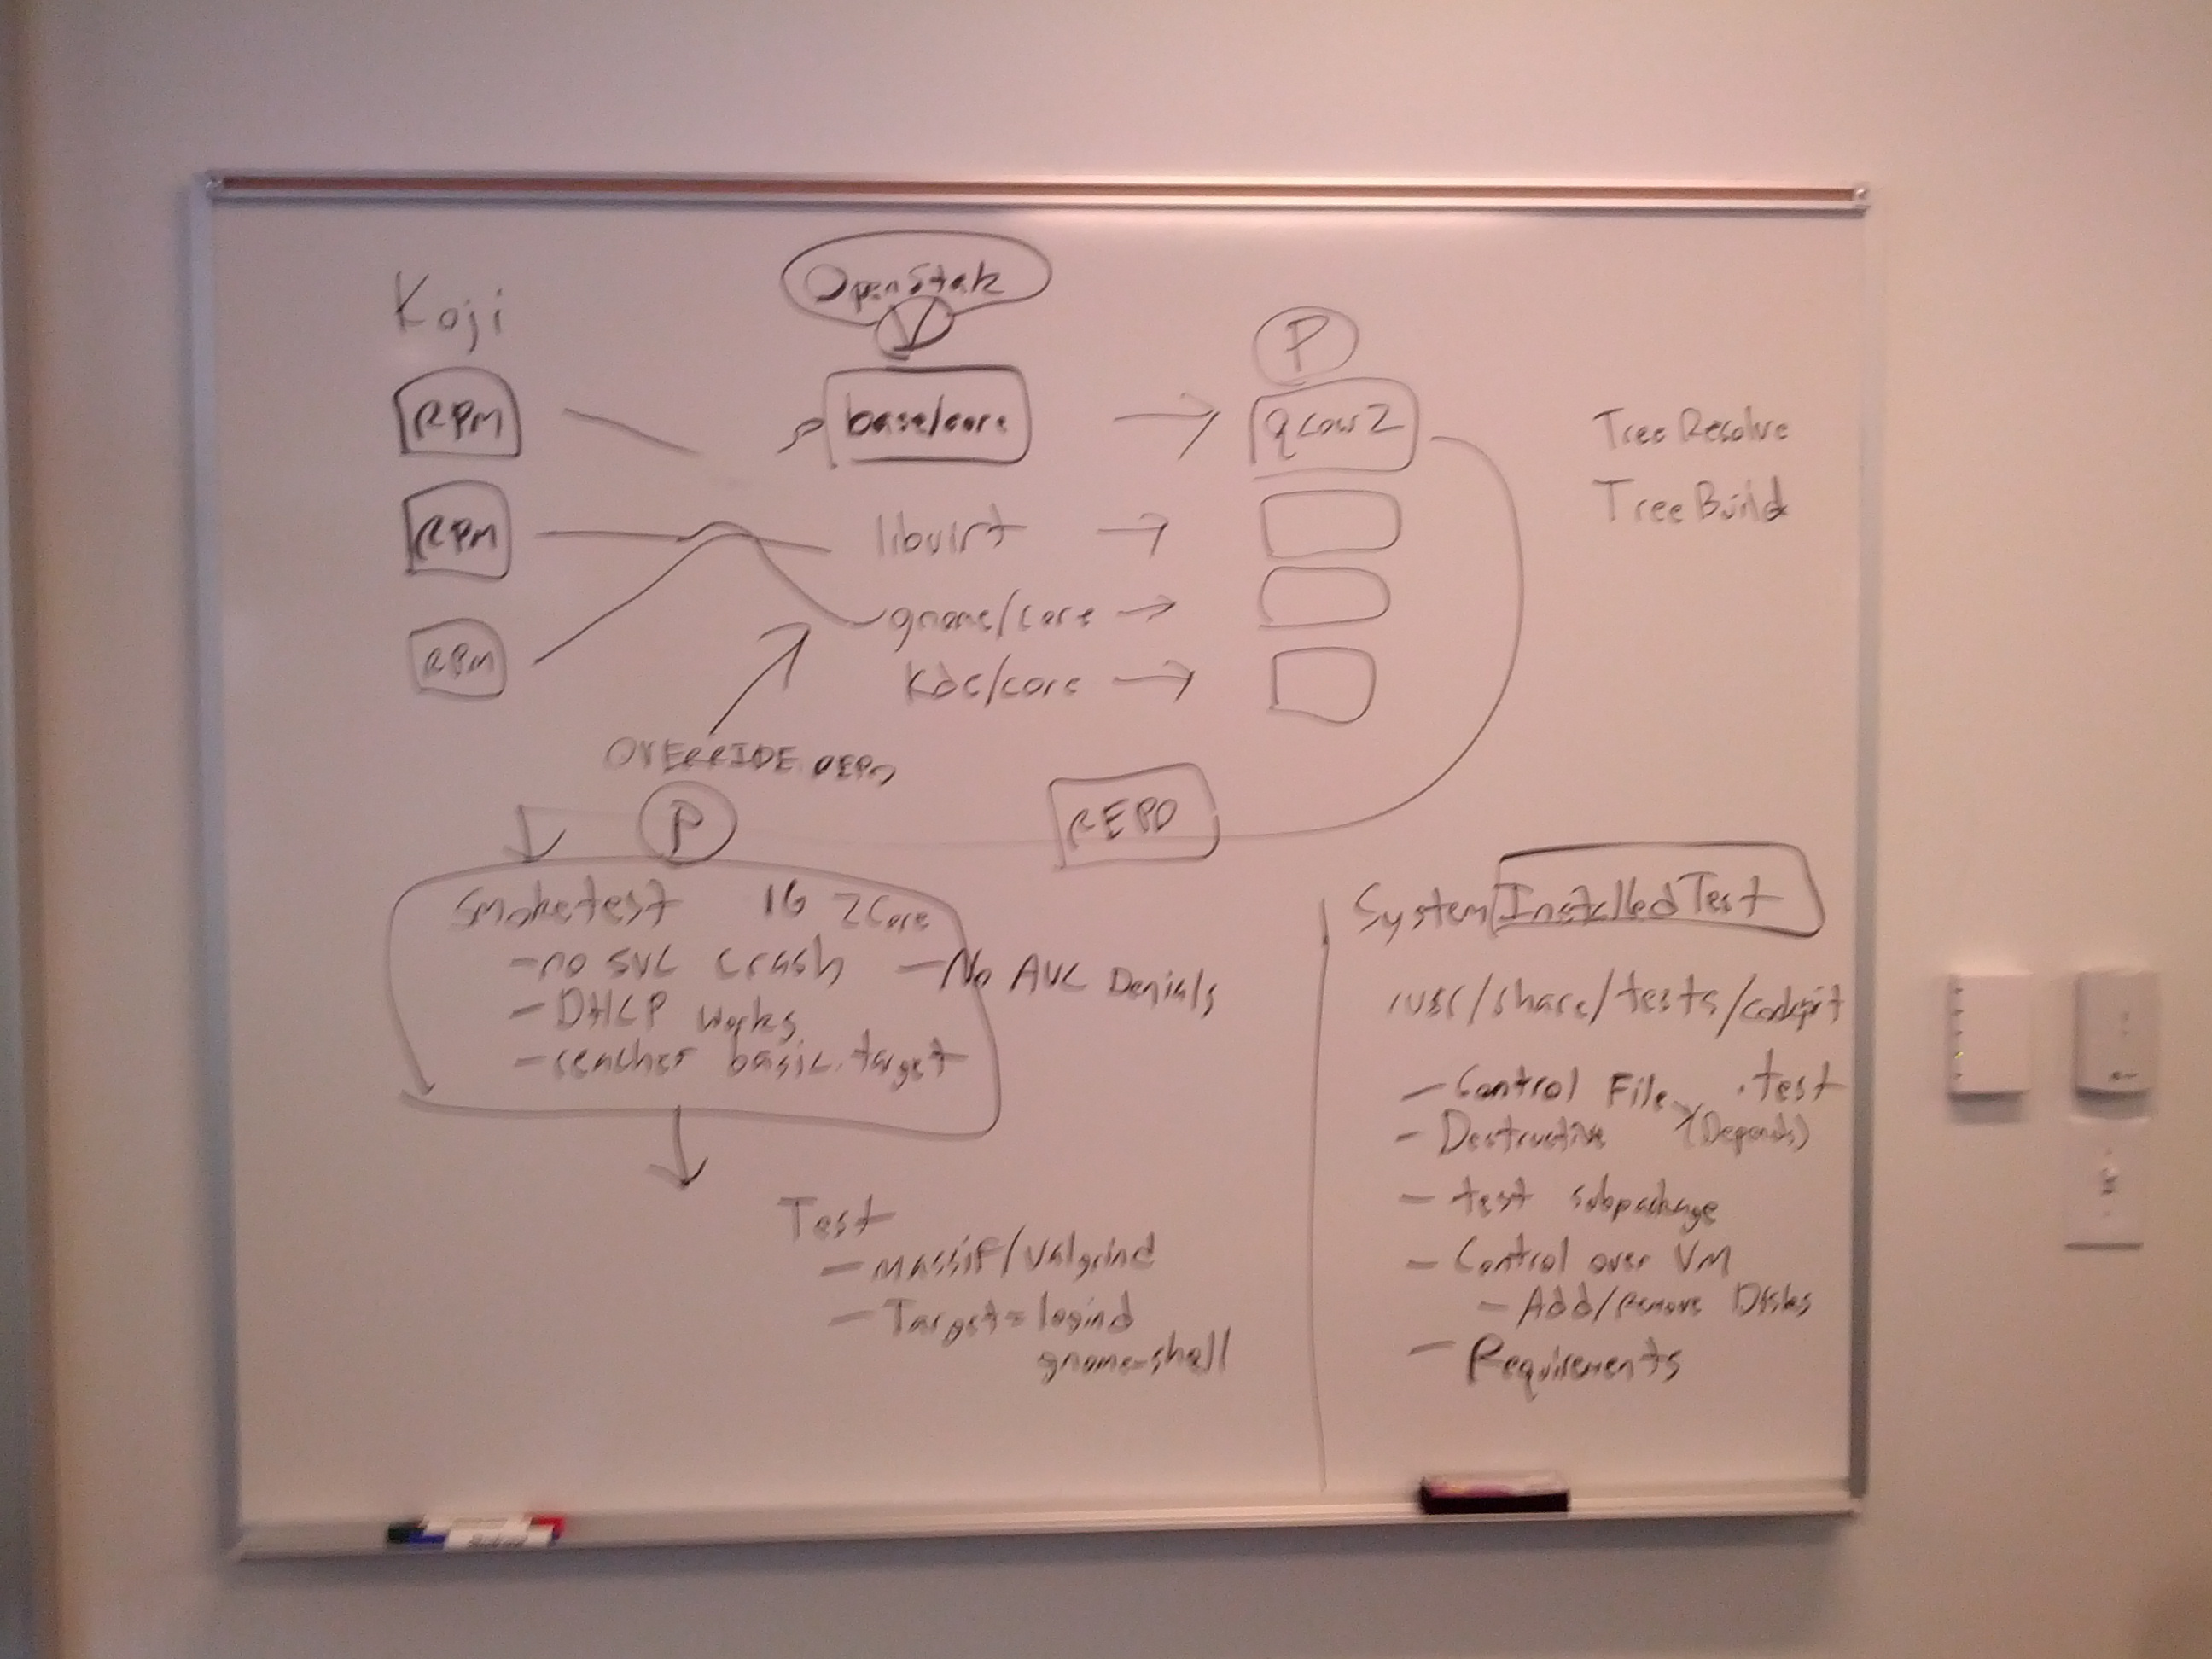 Koji
OpenStak
V
P
RPM
base/core
qcow2
Tree Resolve
RPM
libvirt
Tree Build
RPM
gnome/core
kde/core
OVERRIDE
P
REPO
Smoketest 1G 2Core
- no svc crash - No AVC Denials
- DHCP works
- reaches basic.target
Test
- massif/valgrind
- Target = logind
gnome-shell
System InstalledTest
/usr/share/tests/cockpit
- Control File .test
- Destructive (Depends)
- test subpackage
- Control over VM
- Add/Remove Disks
- Requirements